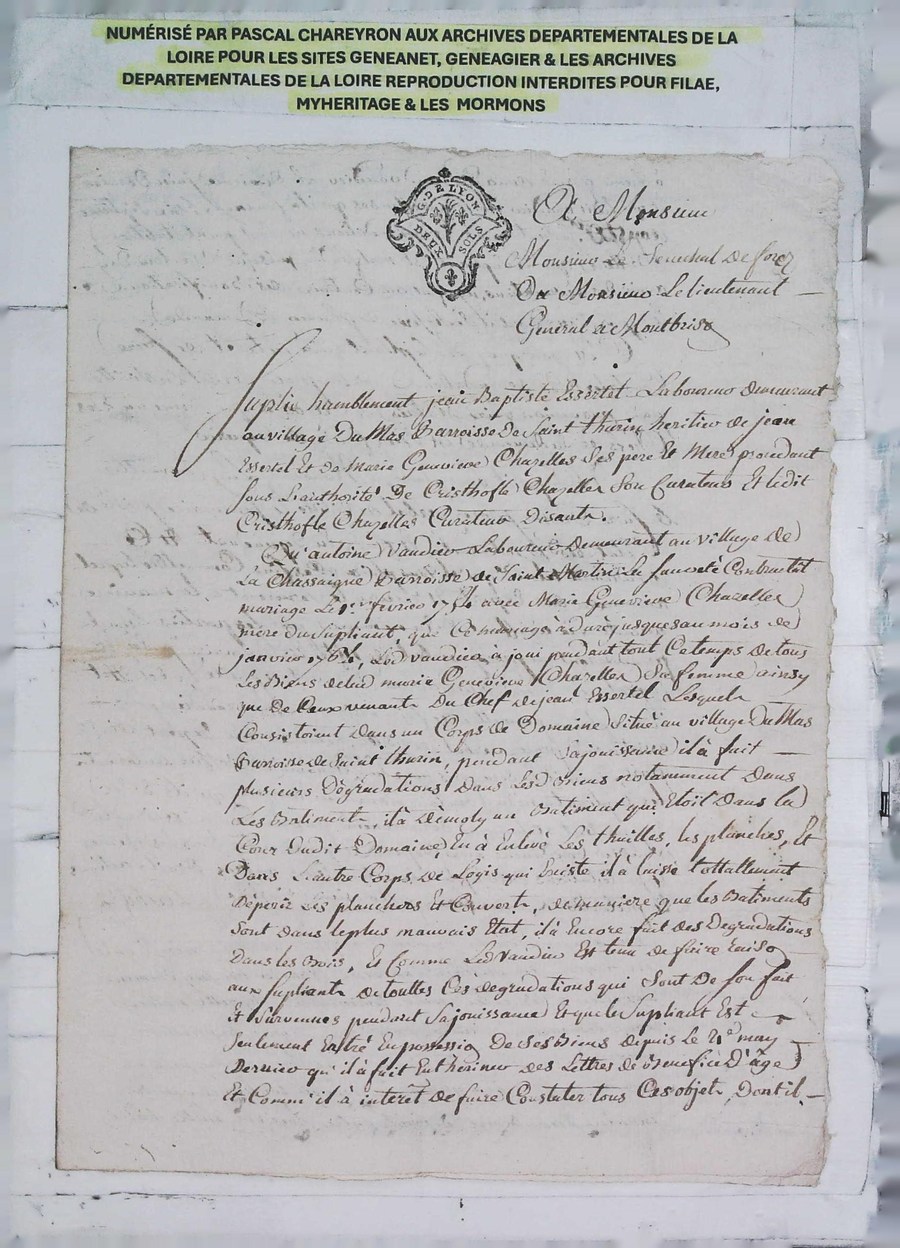 NUMÉRISÉ PAR PASCAL CHAREYRON AUX ARCHIVES DEPARTEMENTALES DE LA
LOIRE POUR LES SITES GENEANET, GENEAGIER & LES ARCHIVES
DEPARTEMENTALES DE LA LOIRE REPRODUCTION INTERDITES POUR FILAE,
MYHERITAGE & LES MORMONS
G. DE LYON
DEUX SOLS
A Monsieur
Monsieur Le Senechal de forez
Ou Monsieur Le lieutenant
General a Montbrison
Suplie humblement jean Baptiste Essertel Laboureur demeurant
au village Du Mas Parroisse De Saint thurin heritier de jean
Essertel Et de Marie Genevieve Chazelles Ses pere Et Mere, procedant
Sous L'authorité De Cristhofle Chazelles Son Curateur Et ledit
Cristhofle Chazelles Curateur Disants
Qu'antoine Vaudier Laboureur Demeurant au village de
La Chassaigne Parroisse de Saint Martin La fauveté Contractat
mariage Le 1er fevrier 1754 avec Marie Genevieve Chazelles
mere du Supliant, que Ce mariage à duré jusques au mois de
janvier Led vaudier à joui pendant tout Ce temps de tous
Les Biens de lad marie Genevieve Chazelles Sa femme ainsy
que de Ceux venants Du Chef de jean Essertel Lesquels
Consistoient dans un Corps de Domaine Situé au village Du Mas
Parroisse de Saint thurin, pendant Sa jouissance il à fait
plusieurs Dégradations dans Lesd Biens notamment Dans
Les Batiments, il à Démoly un Batiment qui Etoit Dans la
Cour Dudit Domaine, En à Enlevé Les thuilles, les planches, Et
Dans L'autre Corps de Logis qui Existe il à laissé tottallement
Déperir Les planchers Et Couverts, de maniere que les Batiments
Sont dans le plus mauvais Etat, il à Encore fait des Degradations
Dans les Bois, Et Comme Led Vaudier Est tenu de faire raison
aux Supliants de touttes Ces degradations qui Sont De Son fait
Et Survenues pendant Sa jouissance Et que le Supliant Est
Seulement Entré En possession De Ses Biens depuis Le may
Dernier qu'il à fait Enthériner des Lettres de Benefice D'âge
Et Comm'il à interet de faire Constater tous Ces objets, Dont il